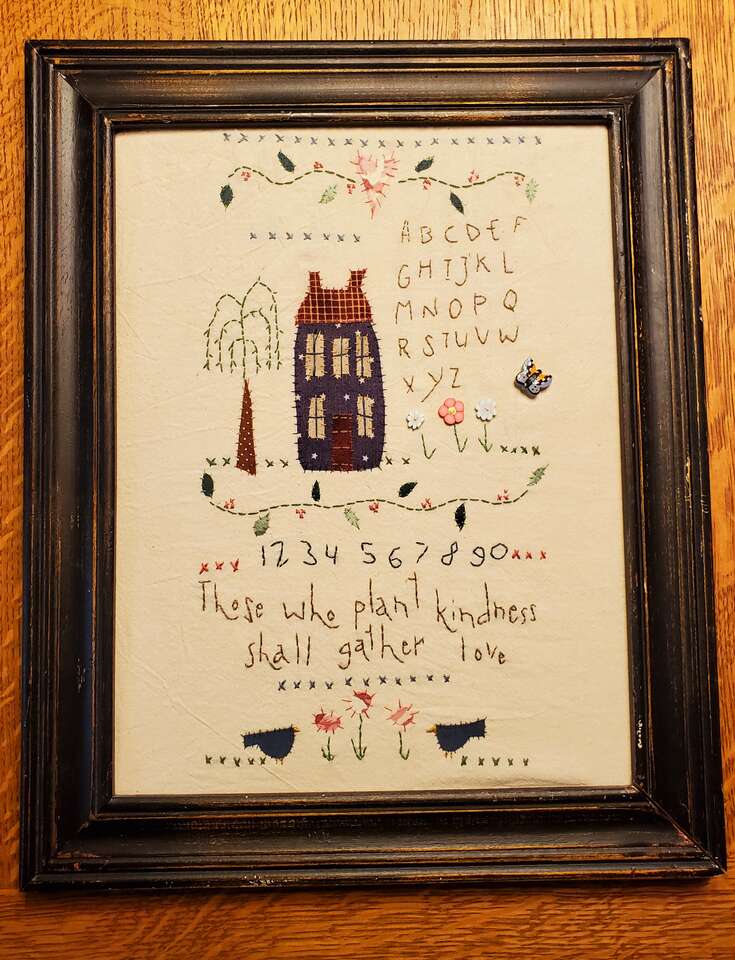 A B C D E F
G H I J K L
M N O P Q
R S T U V W
X Y Z
1 2 3 4 5 6 7 8 9 0
Those who plant kindness
shall gather love